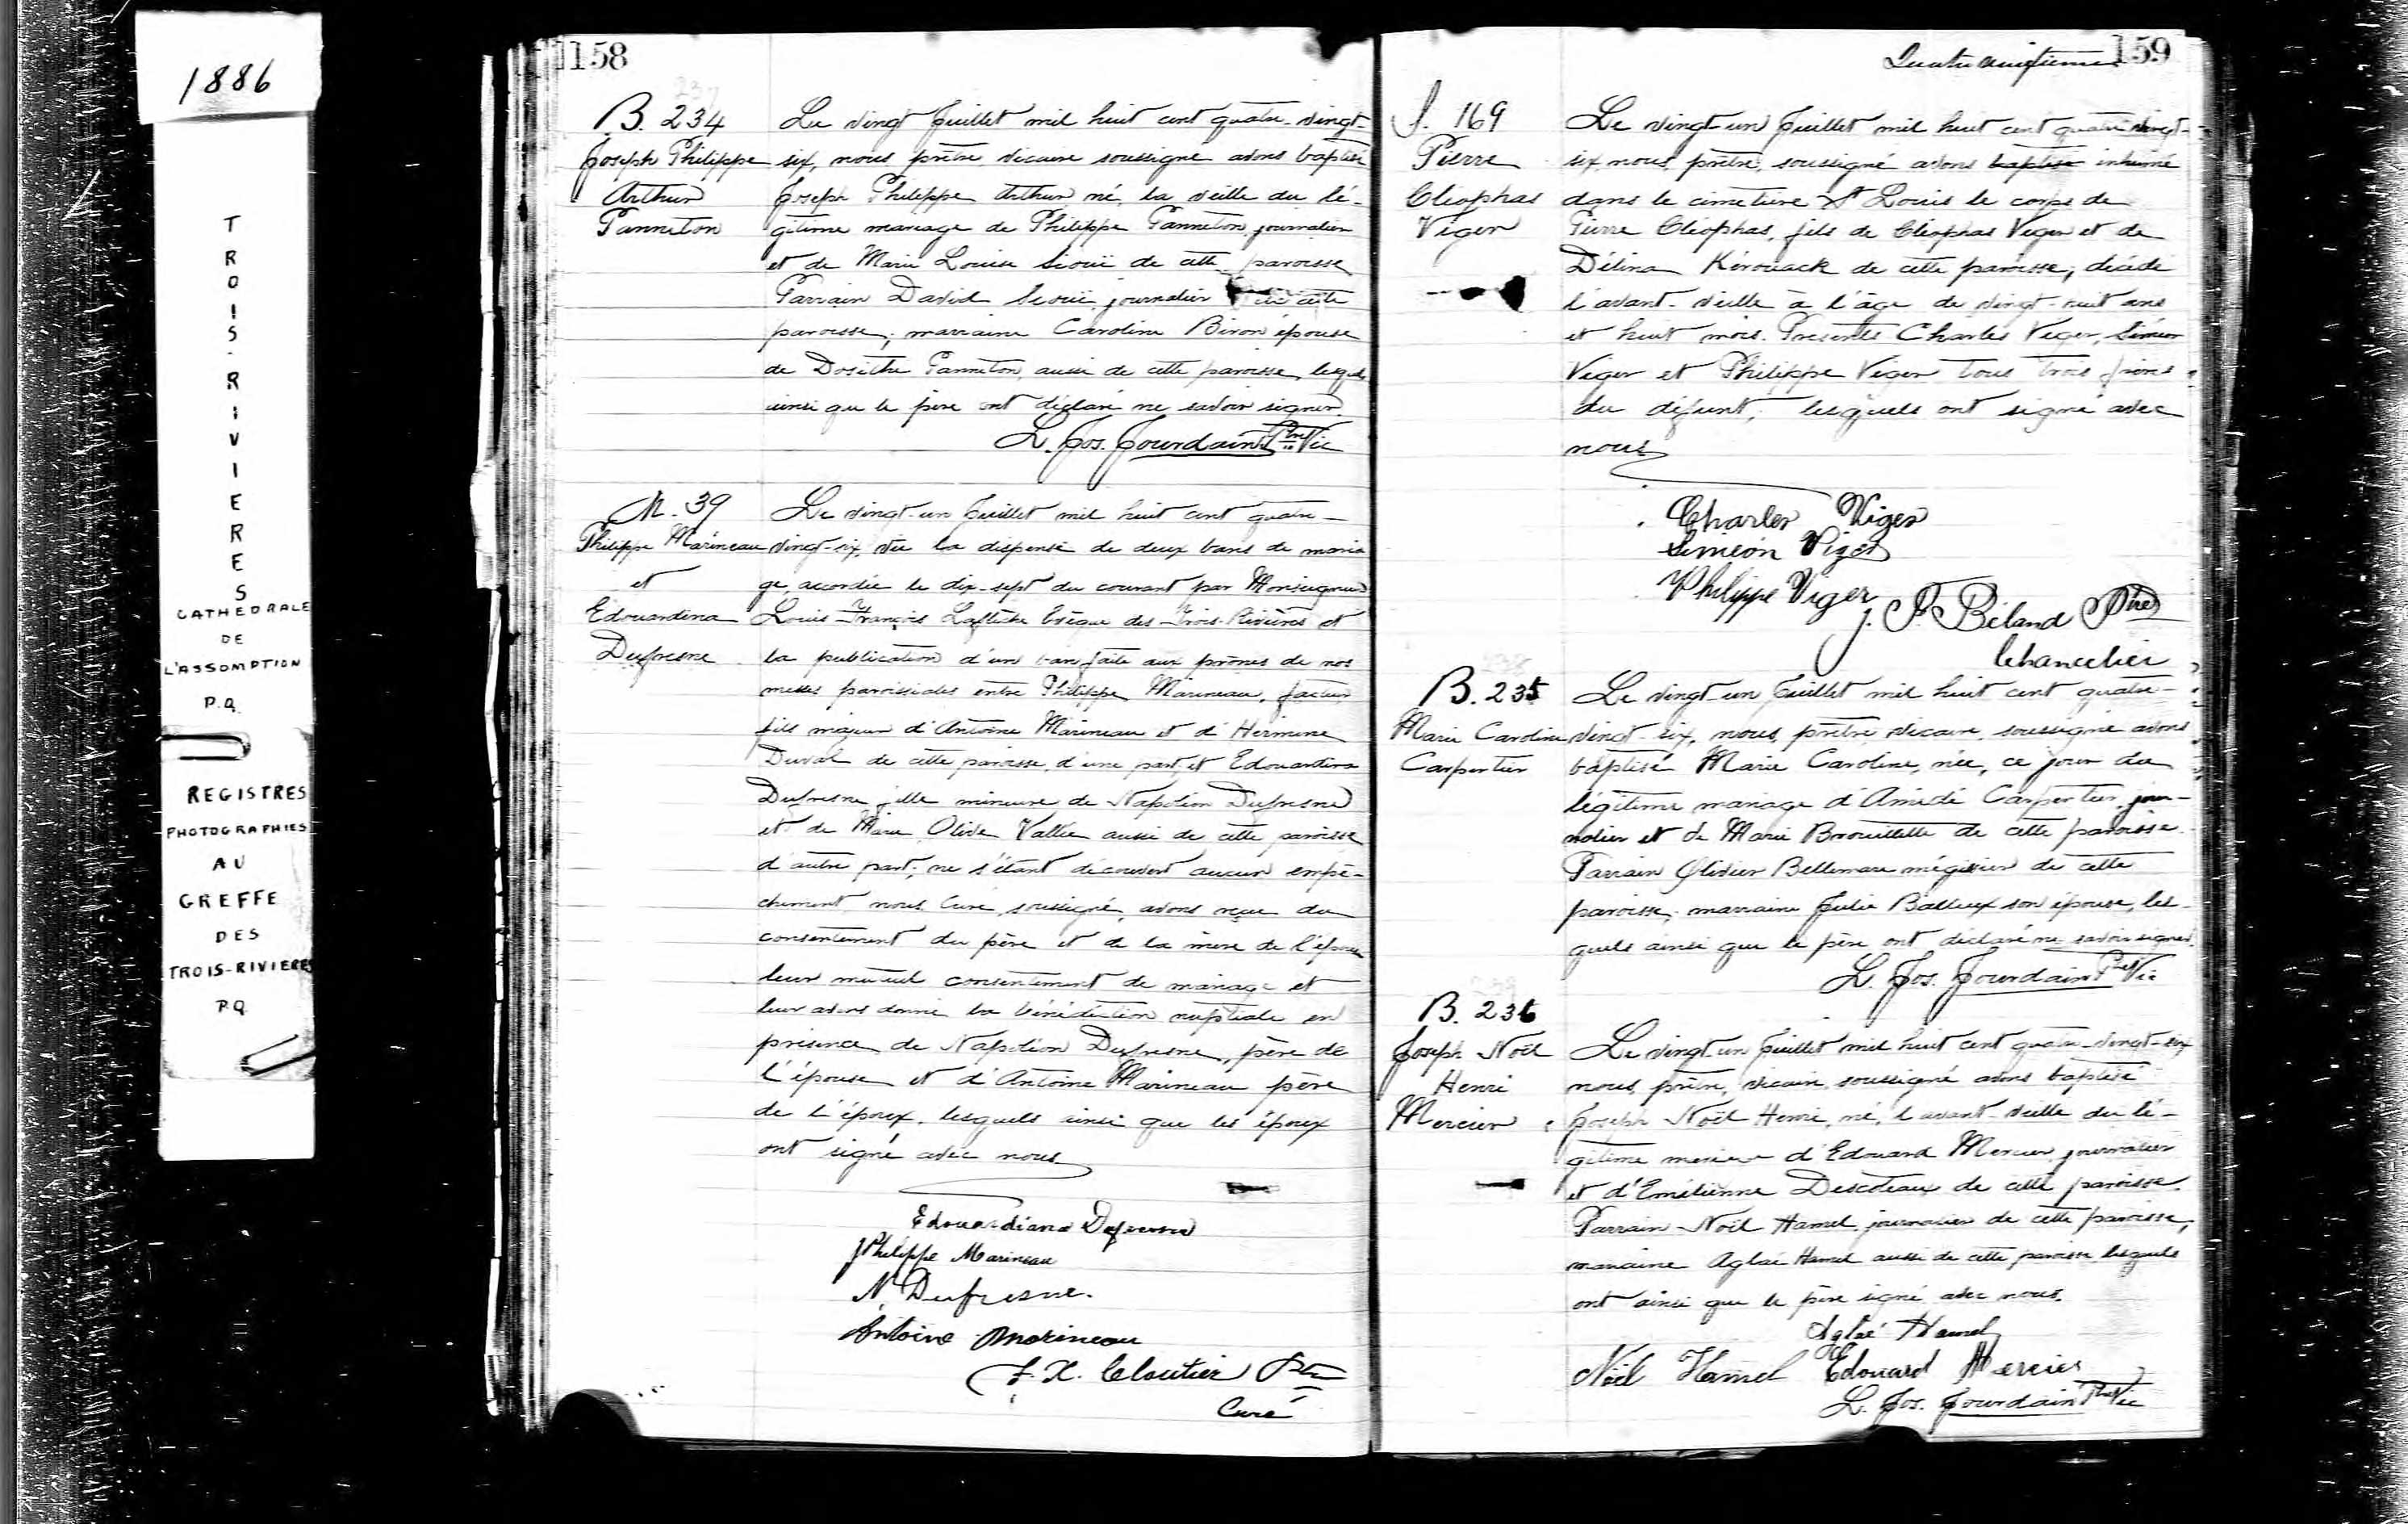 1886
TROIS-RIVIERES
CATHEDRALE
DE
L'ASSOMPTION
P.Q.
REGISTRES
PHOTOGRAPHIES
AU
GREFFE
DES
TROIS-RIVIERES
P.Q.
158
B. 234
Joseph Philippe
Arthur
Panneton
Le vingt Juillet mil huit cent quatre-vingt-
six, nous prêtre vicaire soussigné avons baptisé
Joseph Philippe Arthur né, la veille du lé-
gitime mariage de Philippe Panneton, journalier
et de Marie Louise de cette paroisse
Parrain David journalier de cette
paroisse; marraine Caroline Biron épouse
de Dosithé Panneton, aussi de cette paroisse, lesquels
ainsi que le père ont déclaré ne savoir signer.
L. Jos. Jourdain Ptre Vic
M. 39
Philippe Marineau
et
Edouardina
Dufresne
Le vingt-un Juillet mil huit cent quatre-
vingt-six, vu la dispense de deux bans de maria
ge, accordée le dix-sept du courant par Monseigneur
Louis-François Laflèche Evêque des Trois-Rivières et
la publication d'un ban faite aux prônes de nos
messes paroissiales entre Philippe Marineau, facteur
fils majeur d'Antoine Marineau et d'Hermine
Duval de cette paroisse, d'une part, et Edouardina
Dufresne fille mineure de Napoléon Dufresne
et de Marie Olive Vallée aussi de cette paroisse
d'autre part; ne s'étant découvert aucun empê-
chement nous Curé, soussigné, avons reçu du
consentement du père et de la mère de l'épouse
leur mutuel consentement de mariage et
leur avons donné la bénédiction nuptiale en
présence de Napoléon Dufresne, père de
l'épouse et d'Antoine Marineau père
de l'époux, lesquels ainsi que les époux
ont signé avec nous
Edouardiana Dufresne
Philippe Marineau
N. Dufresne.
Antoine Morineau
F. X. Cloutier Ptre
Curé
Quatrevingtième 159
S. 169
Pierre
Cléophas
Viger
Le vingt-un Juillet mil huit cent quatre vingt-
six, nous, prêtre, soussigné avons baptisé inhumé
dans le cimetière St Louis le corps de
Pierre Cléophas, fils de Cléophas Viger et de
Délina Kérouack de cette paroisse, décédé
l'avant-veille à l'âge de vingt-huit ans
et huit mois. Présents Charles Viger, Siméon
Viger et Philippe Viger tous trois frères
du défunt; lesquels ont signé avec
nous
Charles Viger
Siméon Viger
Philippe Viger
J. F. Béland Ptre
Chancelier
B. 235
Marie Caroline
Carpentier
Le vingt-un Juillet mil huit cent quatre-
vingt-six, nous, prêtre vicaire, soussigné avons
baptisé Marie Caroline, née, ce jour du
légitime mariage d'Amédé Carpentier, jour-
nalier et de Marie Brouillette de cette paroisse.
Parrain Olivier Bellemare mégissier de cette
paroisse, marraine Julie son épouse, les-
quels ainsi que le père ont déclaré ne savoir signer.
L. Jos. Jourdain Ptre Vic
B. 236
Joseph Noël
Henri
Mercier
Le vingt-un Juillet mil huit cent quatre-vingt-six
nous, prêtre, vicaire soussigné avons baptisé
Joseph Noël Henri, né, l'avant-veille du lé-
gitime mariage d'Edouard Mercier journalier
et d'Emélienne Descoteaux de cette paroisse.
Parrain Noël Hamel, journalier de cette paroisse,
marraine Aglaé Hamel aussi de cette paroisse lesquels
ont ainsi que le père signé avec nous.
Aglaé Hamel
Noël Hamel Edouard Mercier
L. Jos. Jourdain Ptre Vic